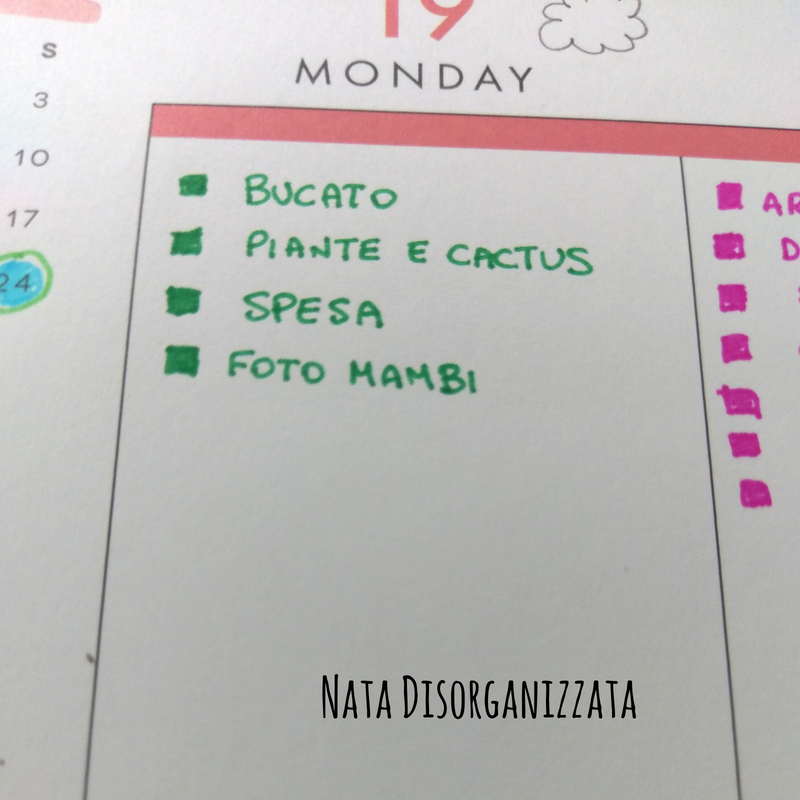 19
MONDAY
S
3
10
17
24
BUCATO
PIANTE E CACTUS
SPESA
FOTO MAMBI
AR
D
NATA DISORGANIZZATA